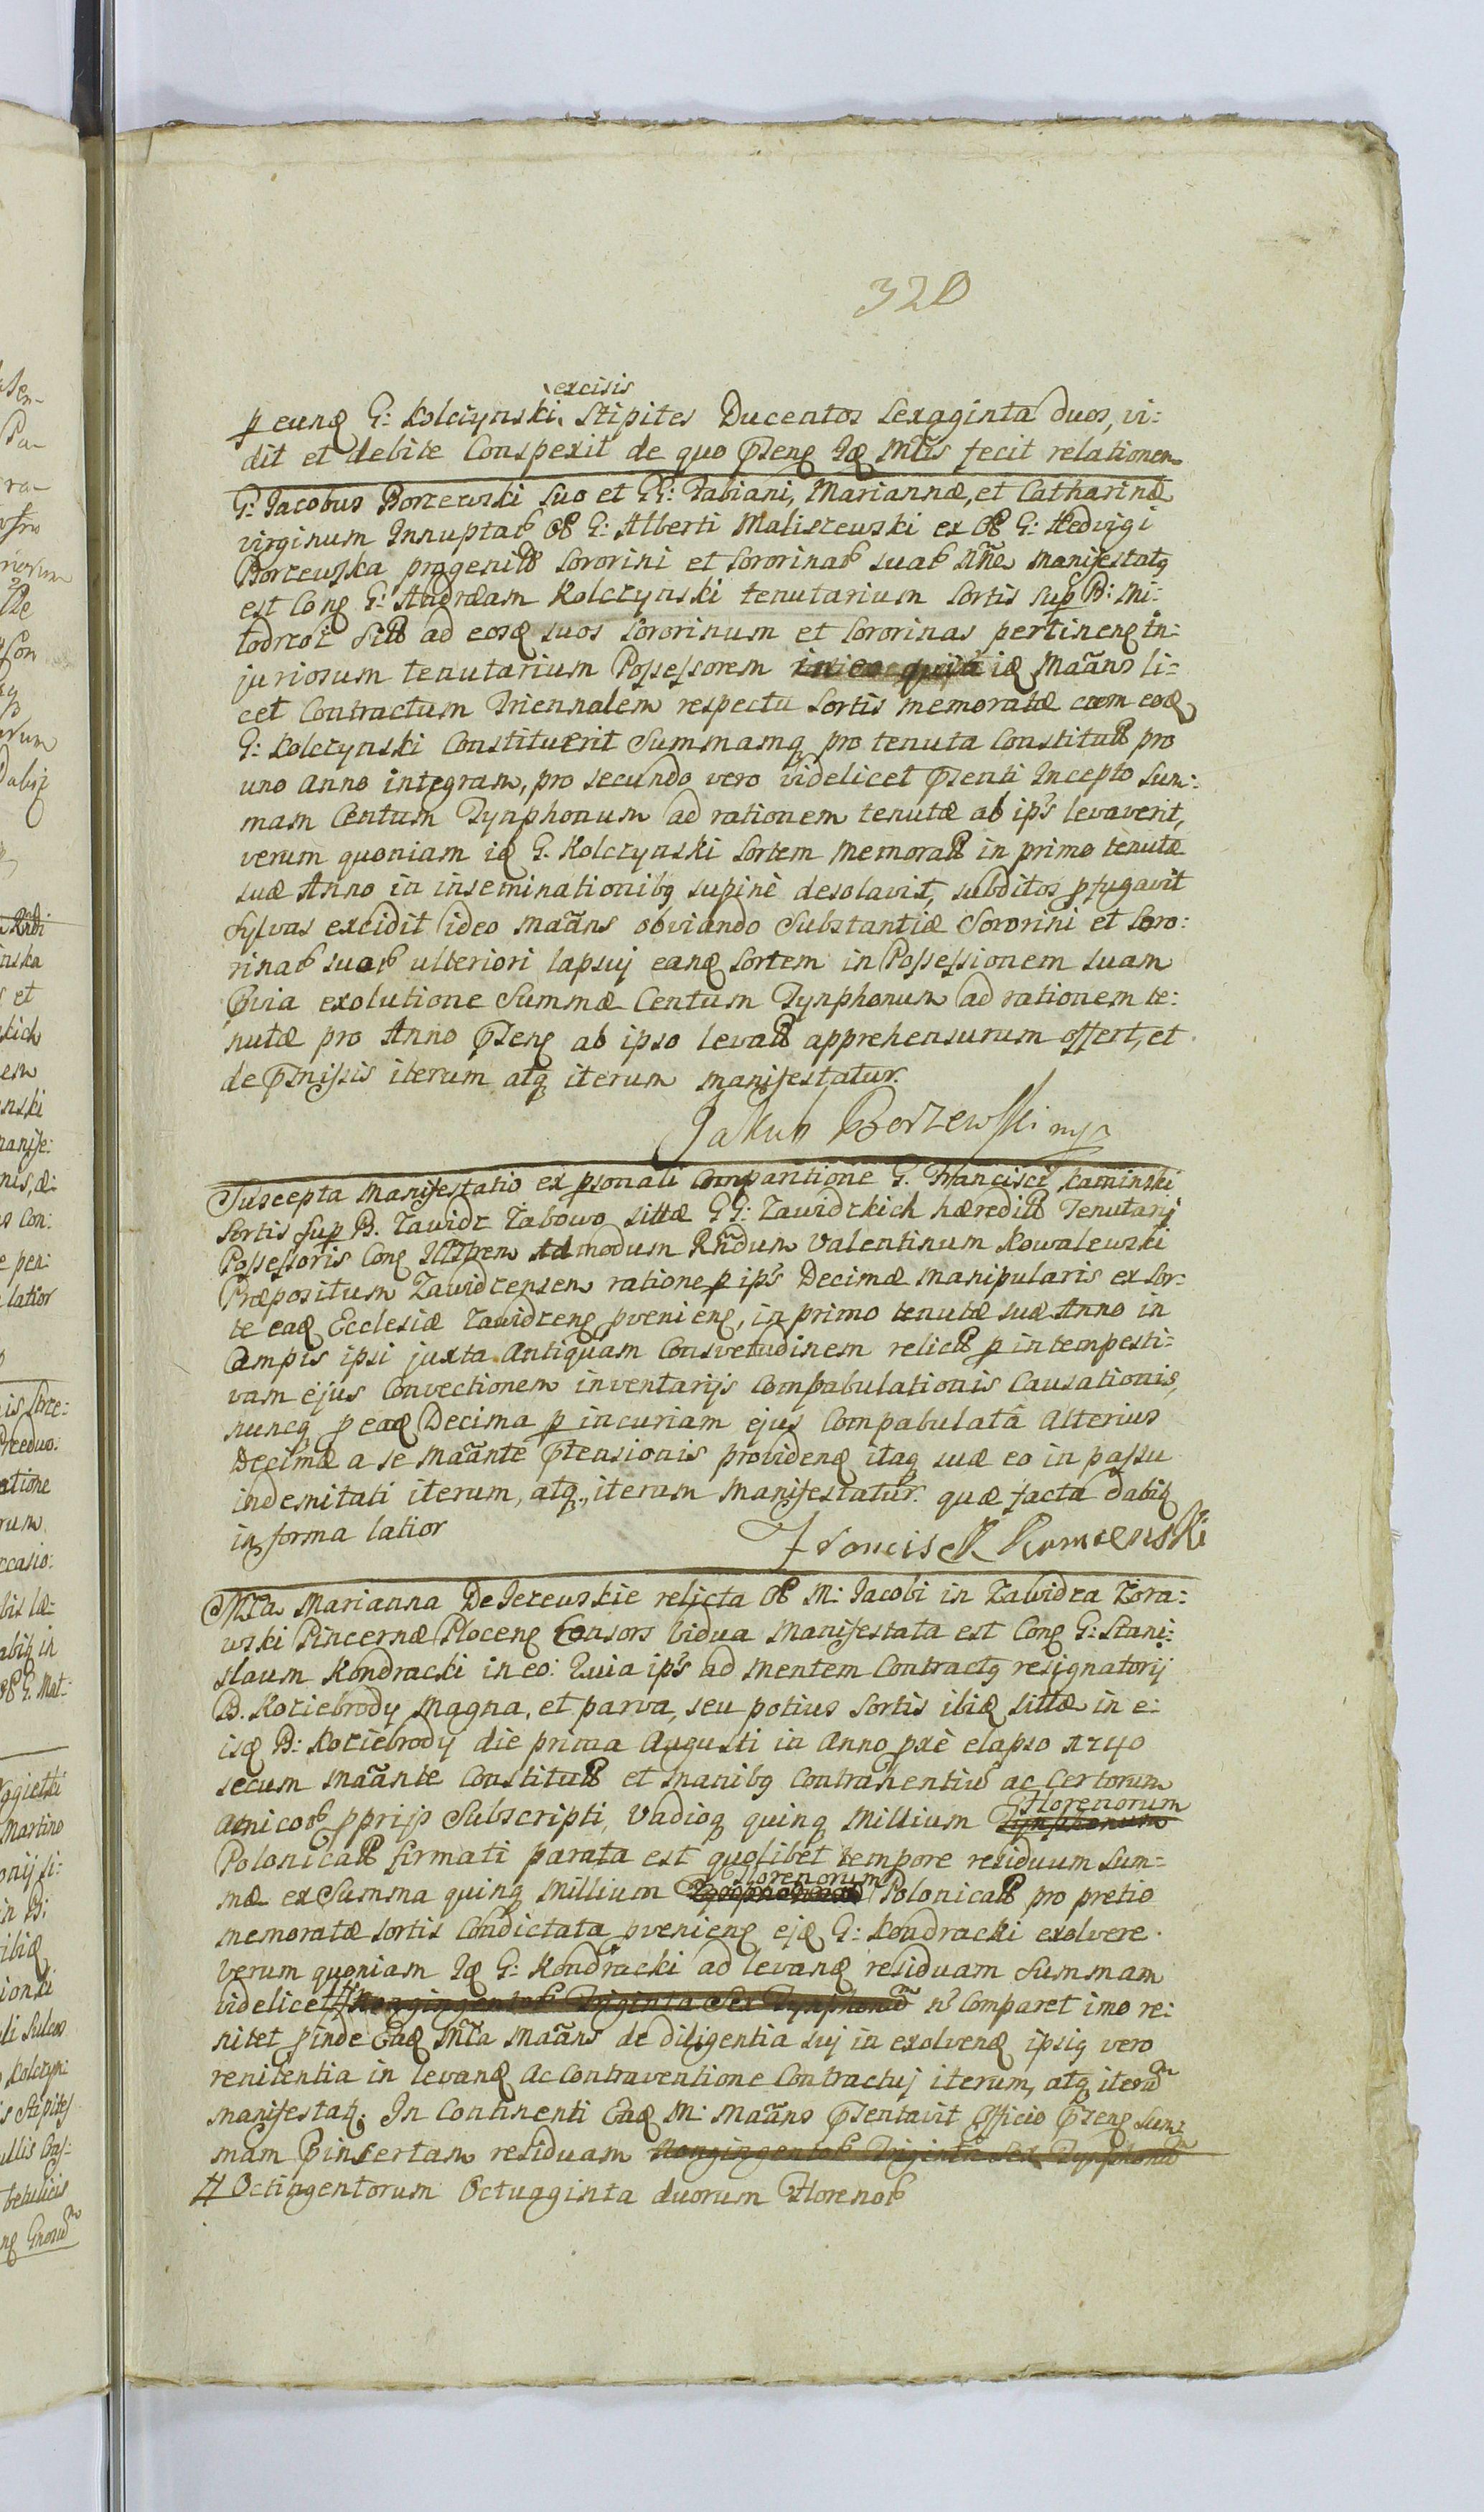 320
excisis
p eunq G: Kolczynski, Stipites Ducentos Sexaginta duos, vi:
dit et debite Conspexit de quo pñsenq Iq Mñlis fecit relationem
G: Jacobus Borzewski suo et GG: Fabiani, Mariannæ, et Catharinæ
virginum Innuptar̃ Ol G: Alberti Maliszewski ex Ol G: Hedvigi
Borzewska progenit̃ Sororini et Sororinar̃ suar̃ nñe manifestatq
est Conq G: Andræam Kolczynski tenutarium Sortis Sup B: Mi:
lodroż sit̃ ad eosq suos Sororinum et Sororinas pertinenq in:
juriosum tenutarium Possessorem in eo quia iq Mañns li:
cet Contractum Triennalem respectu Sortis memoratæ cum eoq
G: Kolczynski Constituerit Summamq pro tenuta Constitut̃ pro
uno Anno integram, pro secundo vero videlicet pñsenti Incepto Sum:
mam Centum Tynphonum ad rationem tenutæ ab ip's levaverit,
verum quoniam iq G. Kolczynski Sortem memorat̃ in primo tenutæ
suæ Anno in inseminationibq supinè desolavit, subditos pfugavit
Sylvas excidit ideo mañns obviando Substantiæ Sororini et Soro:
rinar̃ suar̃ ulteriori lapsuj eanq Sortem in Possessionem suam
pvia exolutione Summæ Centum Tynphonum ad rationem te:
nutæ pro Anno pñsenq ab ipso levat̃ apprehensurum offert, et
de pñmissis iterum atq iterum manifestatur.
Jakub Borzewski mp
Suscepta Manifestatio ex psonali Comparitione G. Francisci Kaminski
Sortis Sup B. Zawidz Zabowo sittæ GG: Zawidzkich hæredit̃ Tenutarij
Possessoris Conq Illtrem Admodum Rñdum Valentinum Kowalewski
Præpositum Zawidzensem ratione p ip's Decimæ manipularis ex Sor:
te eaq Ecclesiæ Zawidzenq pvenienq, in primo tenutæ suæ Anno in
Campis ipsi juxta Antiquam Consvetudinem relict̃ p intempesti:
vam ejus Convectionem inventarijs Compabulationis Causationis,
nuncq p eaq Decima p incuriam ejus Compabulatâ Alterius
Decimæ a se Mañnte pñtensionis providenq itaq suæ eo in passu
indemnitati iterum, atq, iterum Manifestatur. quæ facta dabiq
in forma latior
Franciszk Kamienski
Mñca Marianna De Jezewskie relicta Ol M: Jacobi in Zawidza Zora:
wski Pincernæ Plocenq Consors Vidua Manifestata est Conq G: Stani:
slaum Kondracki in eo: Quia ip's ad mentem Contractq resignatorij
B. Koziebrody Magna, et parva, seu potius Sortis ibiq sittæ in e:
isq B: Koziebrody die prima Augusti in Anno pxè elapso 1740
secum mañnte Constitut̃ et manibq Contrahentiũ ac Certorum
Florenorum
amicor̃ pprijs Subscripti, Vadioq quinq Millium Tynphonum
Polonicat̃ firmati parata est quolibet tempore residuum Sum:
Florenorum
mæ ex Summa quinq Millium Tynphonum Polonicat̃ pro pretio
memoratæ sortis Condictata pvenienq ejq G: Kondracki exolvere.
Verum quoniam Iq G: Kondracki ad levanq residuam Summam
videlicet # Nongingentor̃ Triginta Sex Tynphonũ ñ Comparet imo re:
nitet pinde Eaq Mñca Mañns de diligentia suj in exolvenq ipsiq vero
renitentia in levanq ac Contraventione Contractuj iterum, atq iterũ
manifestatq. In Continenti Eaq M: Mañns pñsentavit Officio pñsenq Sum:
mam pinsertam residuam Nongingentor̃ Triginta Sex Tynphonũ
# Octingentorum Octuaginta duorum Florenor̃